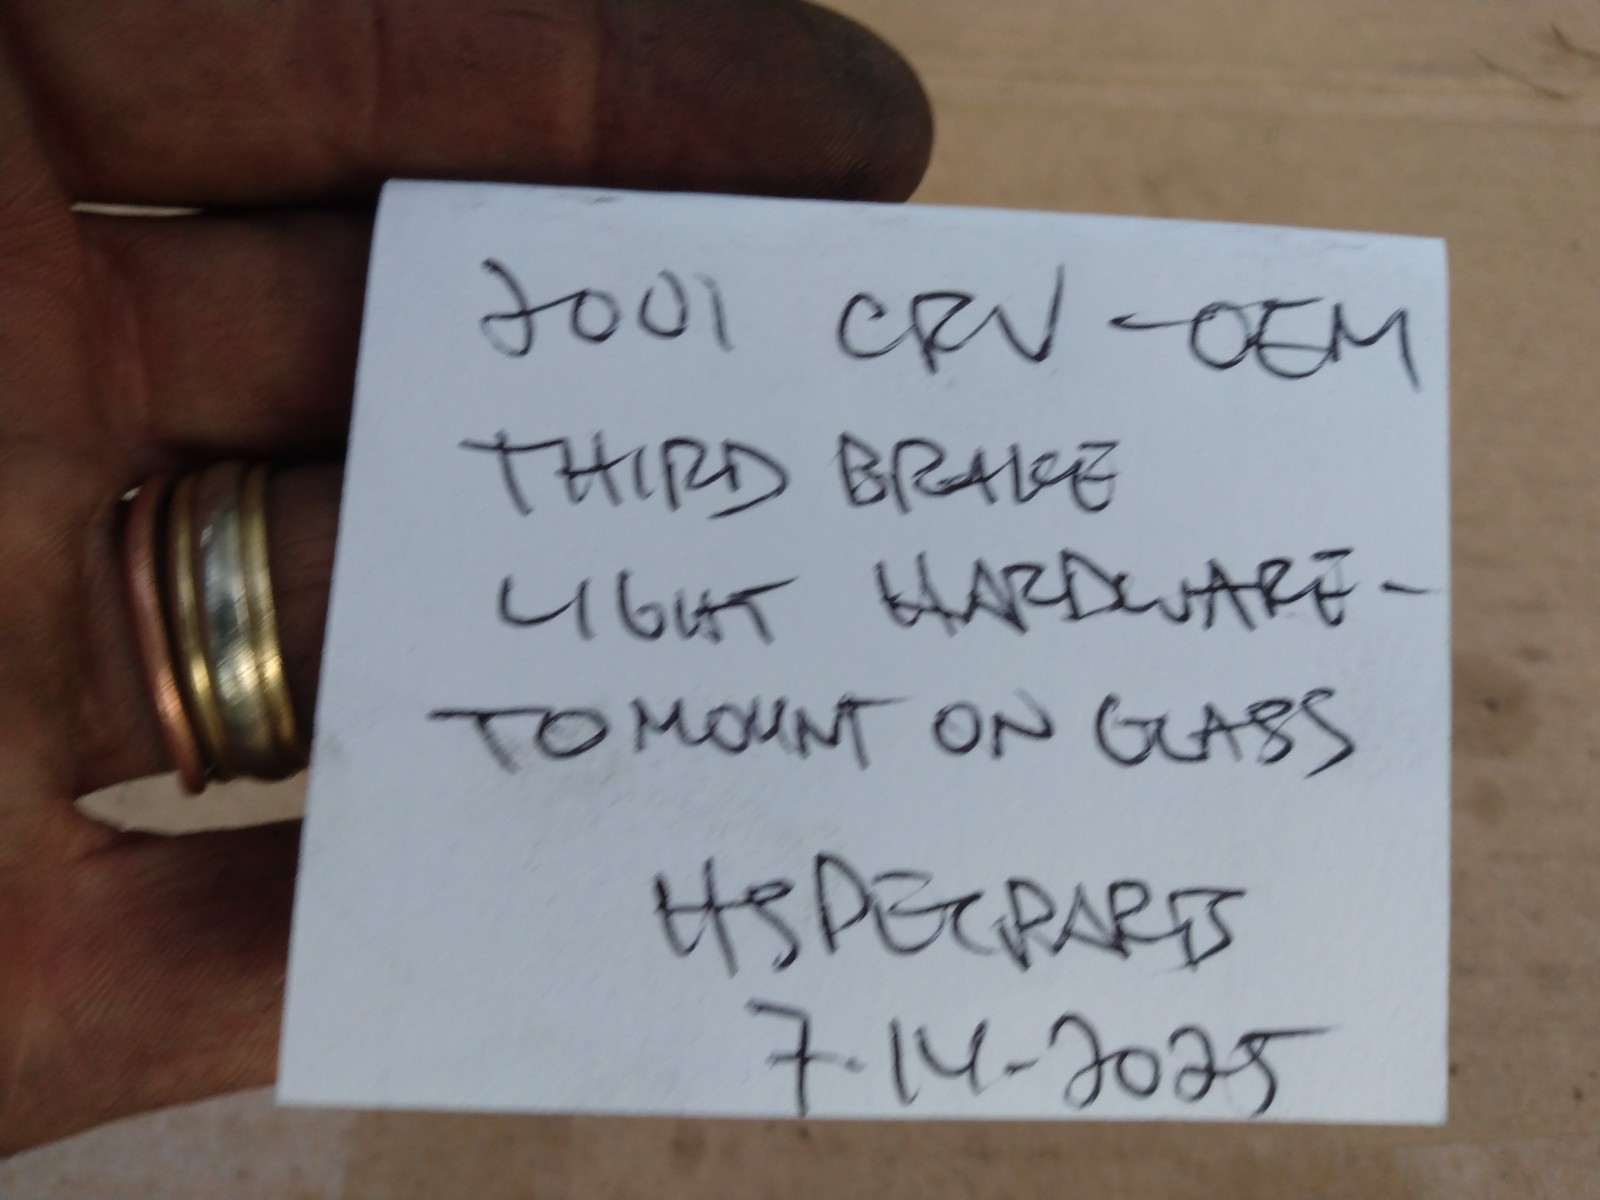 2001 CRV - OEM
THIRD BRAKE
LIGHT HARDWARE -
TO MOUNT ON GLASS
HSPECPARTS
7-14-2025